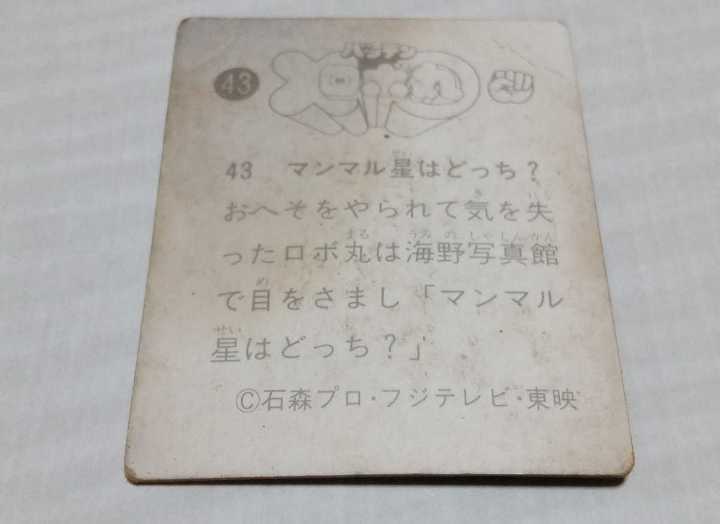 43
ガンバロン
43 マンマル星はどっち?
おへそをやられて気を失
ったロボ丸は海野写真館
で目をさまし「マンマル
星はどっち?」
©石森プロ・フジテレビ・東映